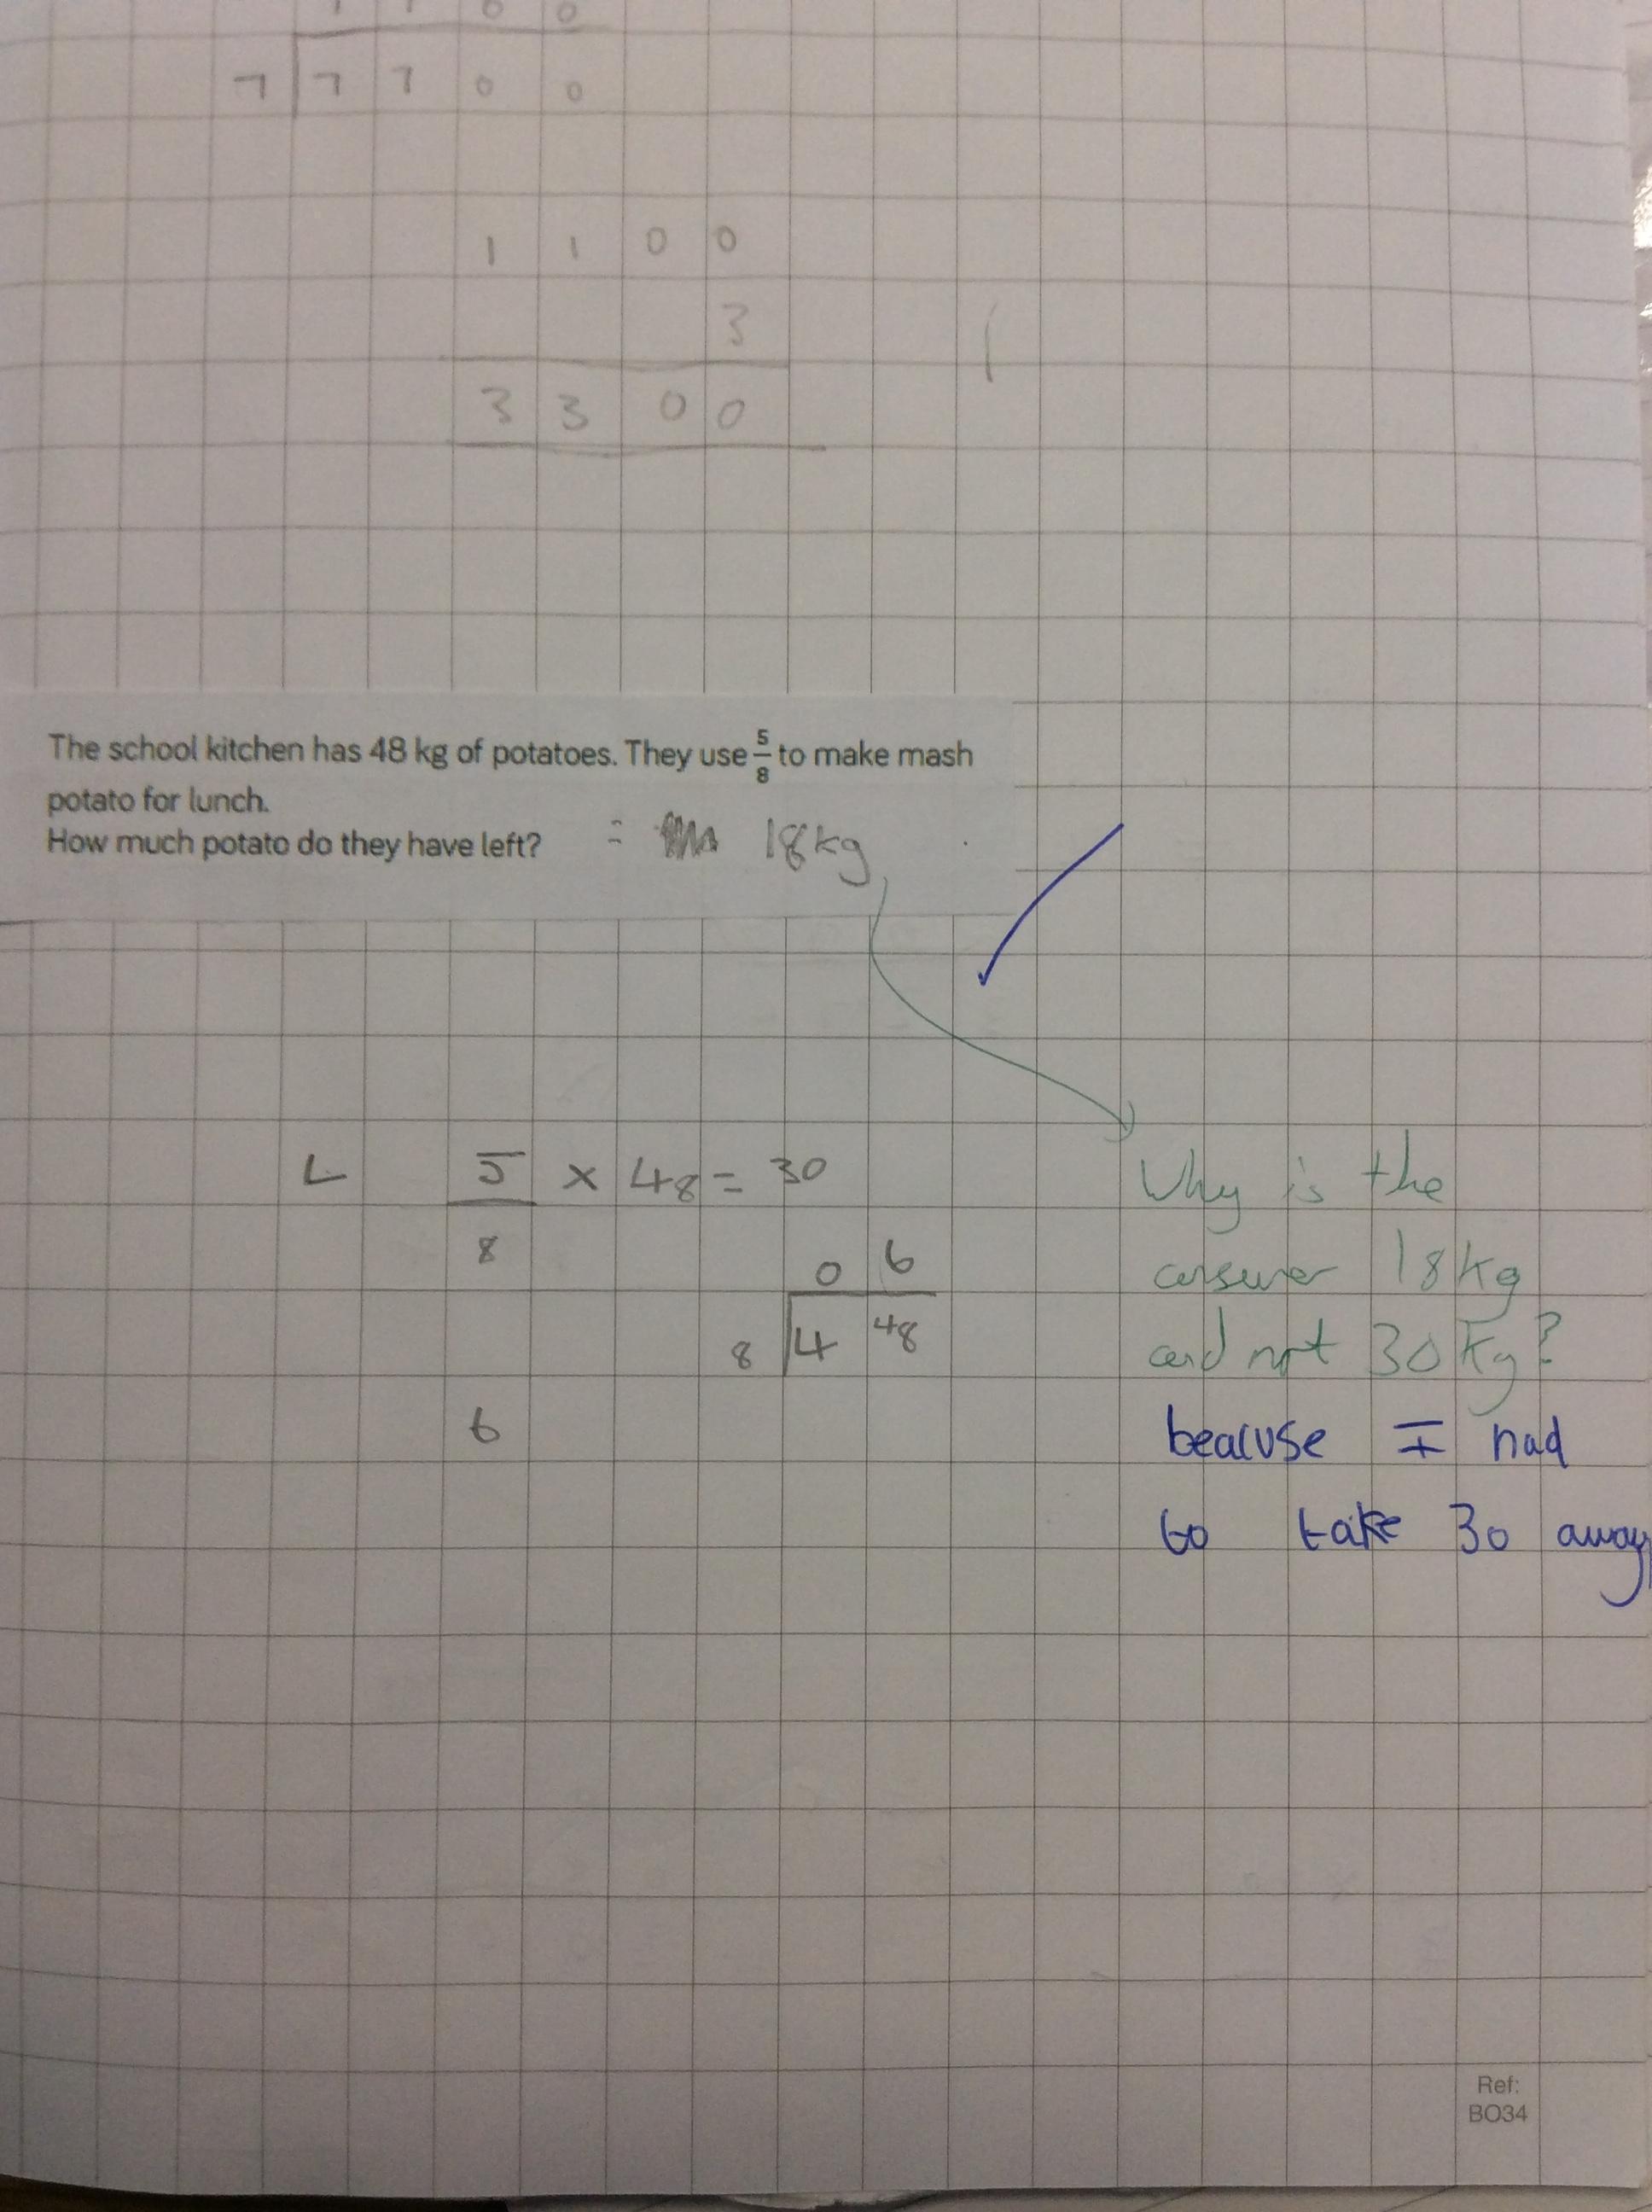 1 1 0 0
7 7 7 0 0
1 1 0 0
3
3 3 0 0
The school kitchen has 48 kg of potatoes. They use 5/8 to make mash
potato for lunch.
How much potato do they have left? = 18kg
5 x 48 = 30
8
0 6
8 4 48
6
Why is the
answer 18kg
and not 30kg?
beacuse I had
to take 30 away
Ref:
BO34